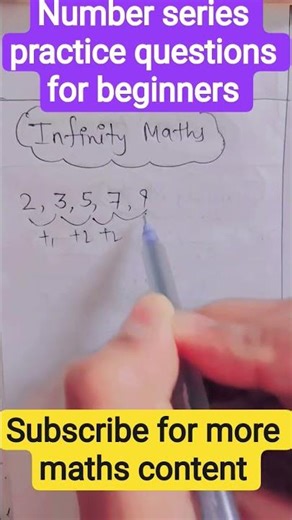 Number series
practice questions
for beginners
Infinity Maths
2, 3, 5, 7, 9
+1 +2 +2
Subscribe for more
maths content